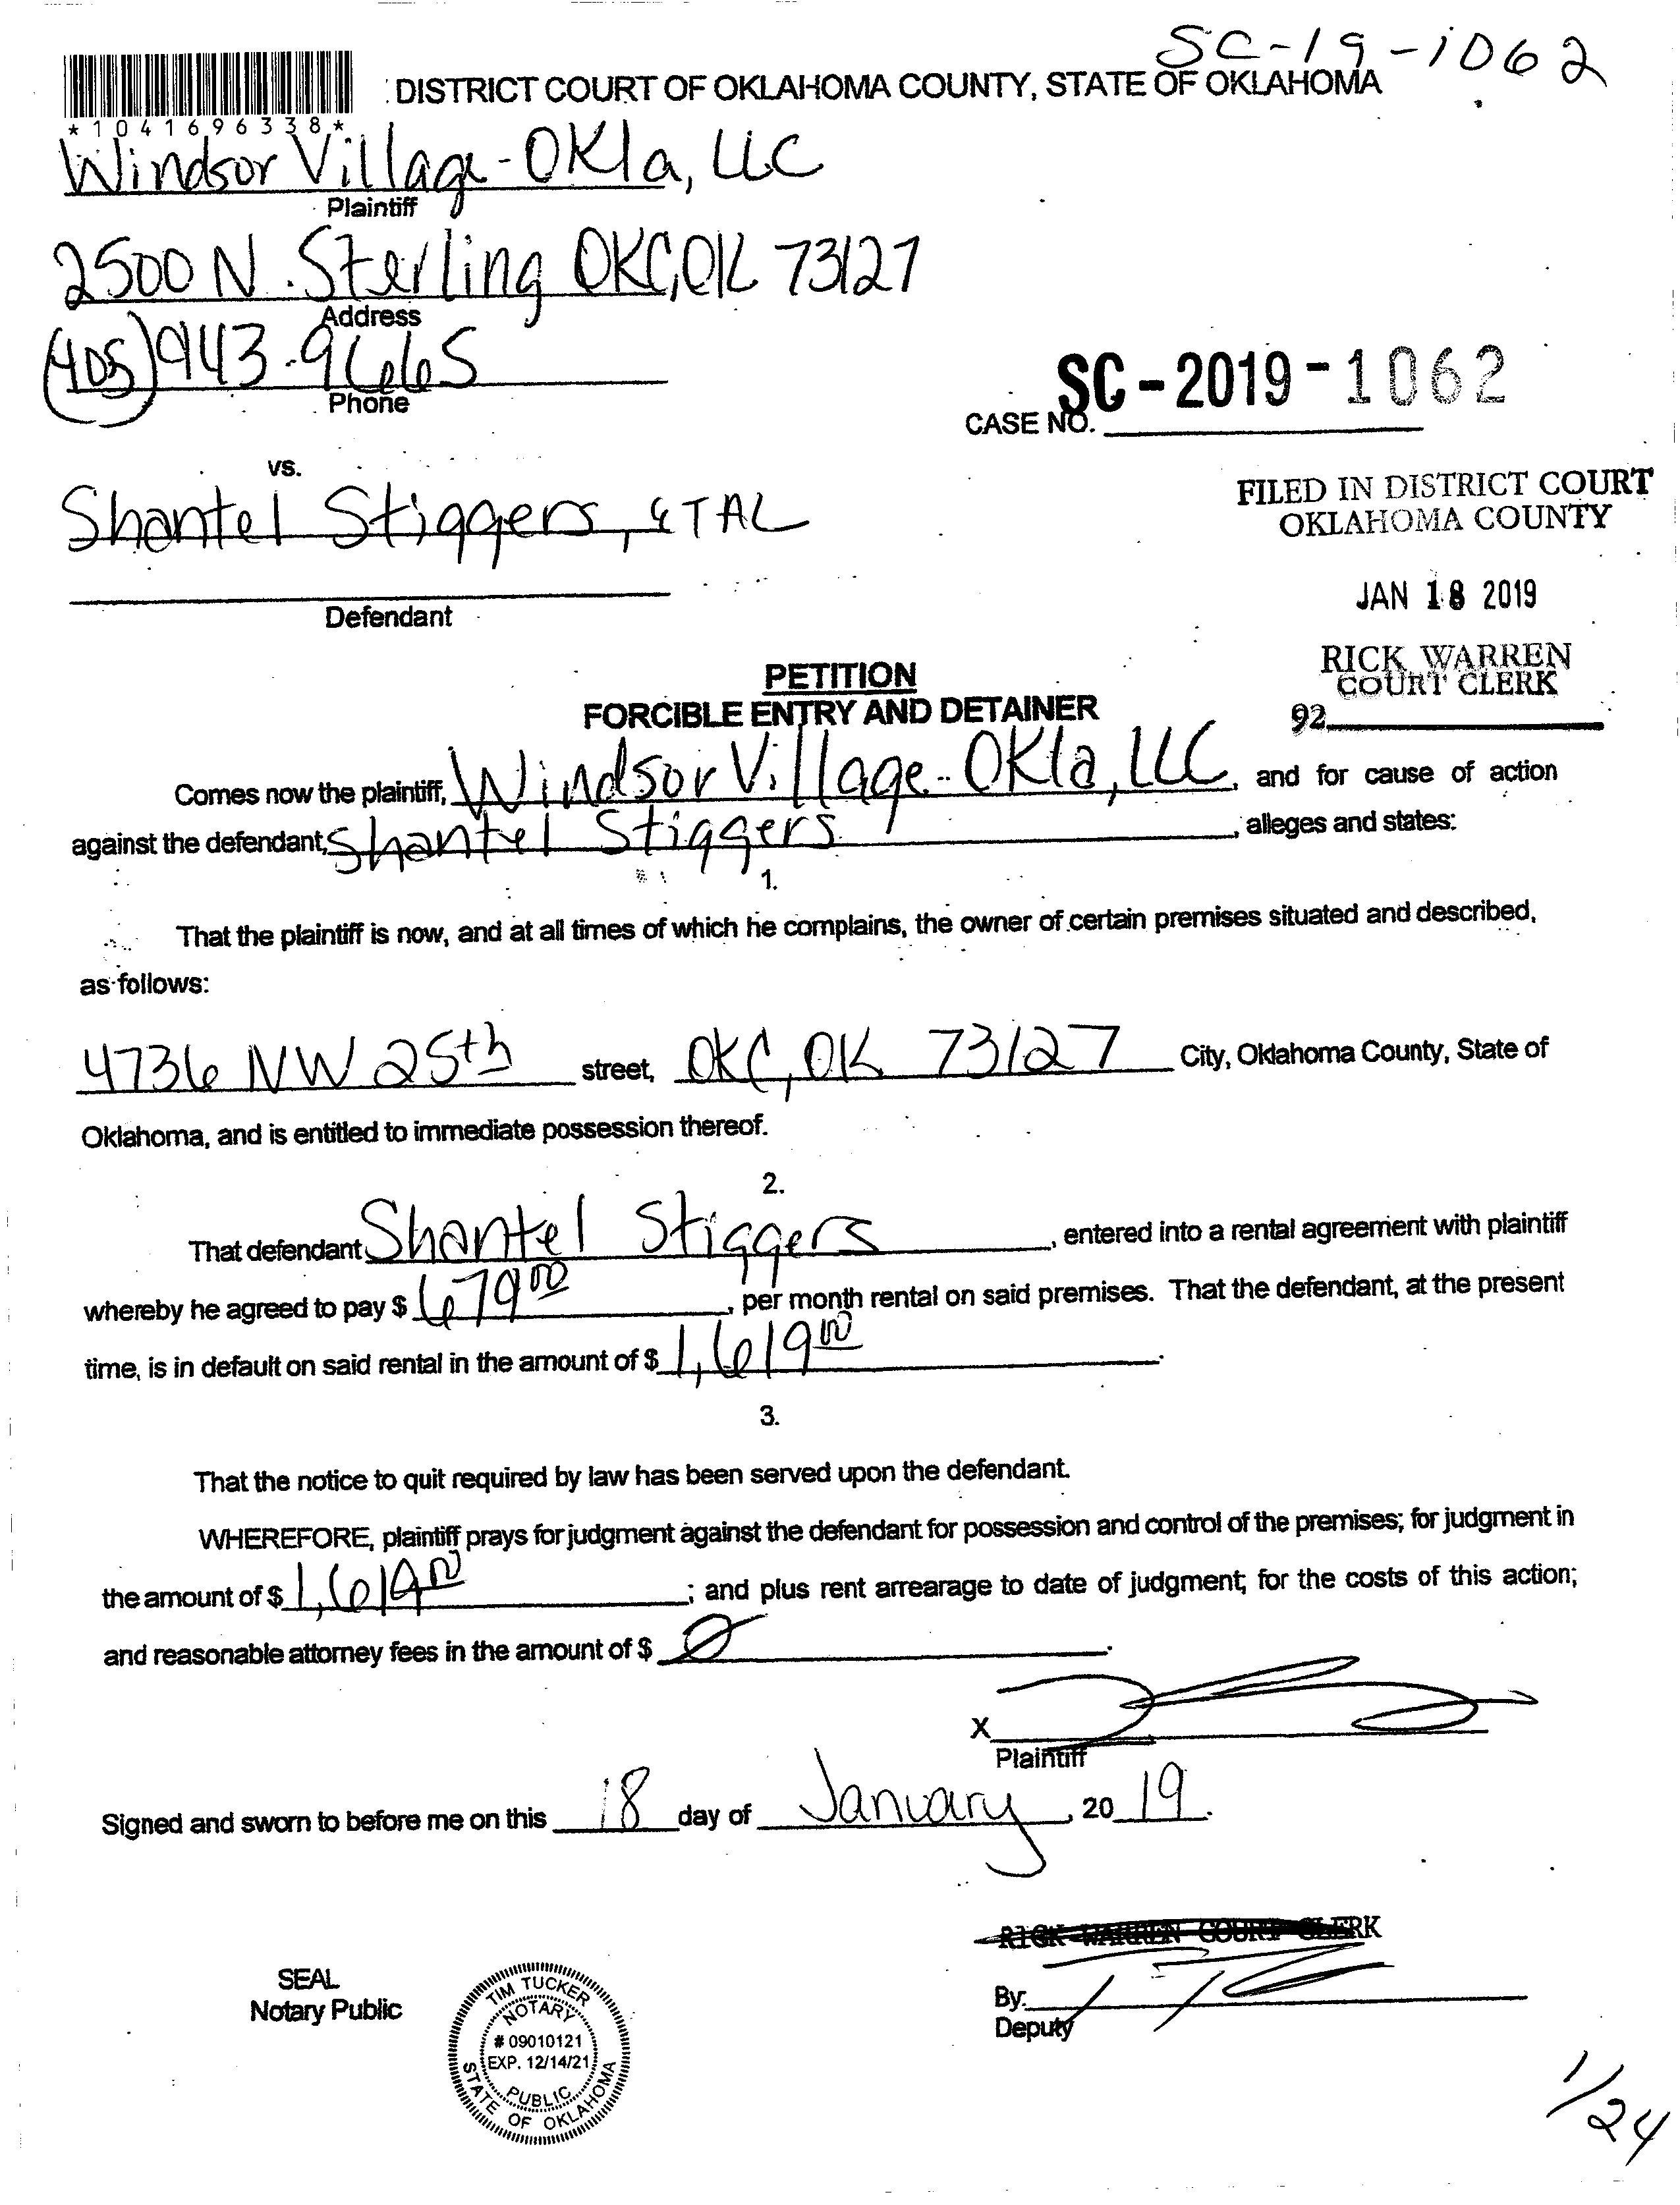 SC-19-1062
DISTRICT COURT OF OKLAHOMA COUNTY, STATE OF OKLAHOMA
*1041696338*
Windsor Village-Okla, LLC
Plaintiff
2500 N. Sterling OKC, OK 73127
Address
(405) 943-9665
Phone
SC-2019-1062
CASE NO.
vs.
Shantel Stiggers, ETAL
FILED IN DISTRICT COURT
OKLAHOMA COUNTY
JAN 18 2019
Defendant
RICK WARREN
COURT CLERK
92
PETITION
FORCIBLE ENTRY AND DETAINER
Comes now the plaintiff, Windsor Village-Okla, LLC, and for cause of action
against the defendant, Shantel Stiggers, alleges and states:
1.
That the plaintiff is now, and at all times of which he complains, the owner of certain premises situated and described,
as follows:
4736 NW 25th street, OKC, OK 73127 City, Oklahoma County, State of
Oklahoma, and is entitled to immediate possession thereof.
2.
That defendant Shantel Stiggers, entered into a rental agreement with plaintiff
whereby he agreed to pay $ 679 00, per month rental on said premises. That the defendant, at the present
time, is in default on said rental in the amount of $ 1,619 00.
3.
That the notice to quit required by law has been served upon the defendant.
WHEREFORE, plaintiff prays for judgment against the defendant for possession and control of the premises; for judgment in
the amount of $ 1,619 00; and plus rent arrearage to date of judgment; for the costs of this action;
and reasonable attorney fees in the amount of $ Ø.
X
Plaintiff
Signed and sworn to before me on this 18 day of January, 2019.
RICK WARREN COURT CLERK
SEAL
Notary Public
TIM TUCKER
NOTARY
# 09010121
EXP. 12/14/21
PUBLIC
STATE OF OKLAHOMA
By:
Deputy
1/24